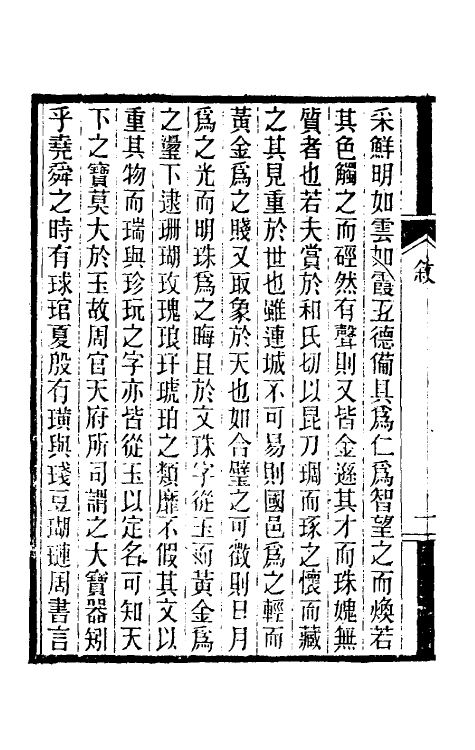 敘
采鮮明如雲如霞五德備具爲仁爲智望之而煥若
其色觸之而硜然有聲則又皆金遜其才而珠媿無
質者也若夫賞於和氏切以昆刀琱而琢之懷而藏
之其見重於世也雖連城不可易則國邑爲之輕而
黃金爲之賤又取象於天也如合璧之可徵則日月
爲之光而明珠爲之晦且於文珠字從玉而黃金爲
之瑬下逮珊瑚玫瑰琅玕琥珀之類靡不假其文以
重其物而瑞與珍玩之字亦皆從玉以定名可知天
下之寶莫大於玉故周官天府所司謂之大寶器矧
乎堯舜之時有球琯夏殷有璜與琖豆瑚璉周書言